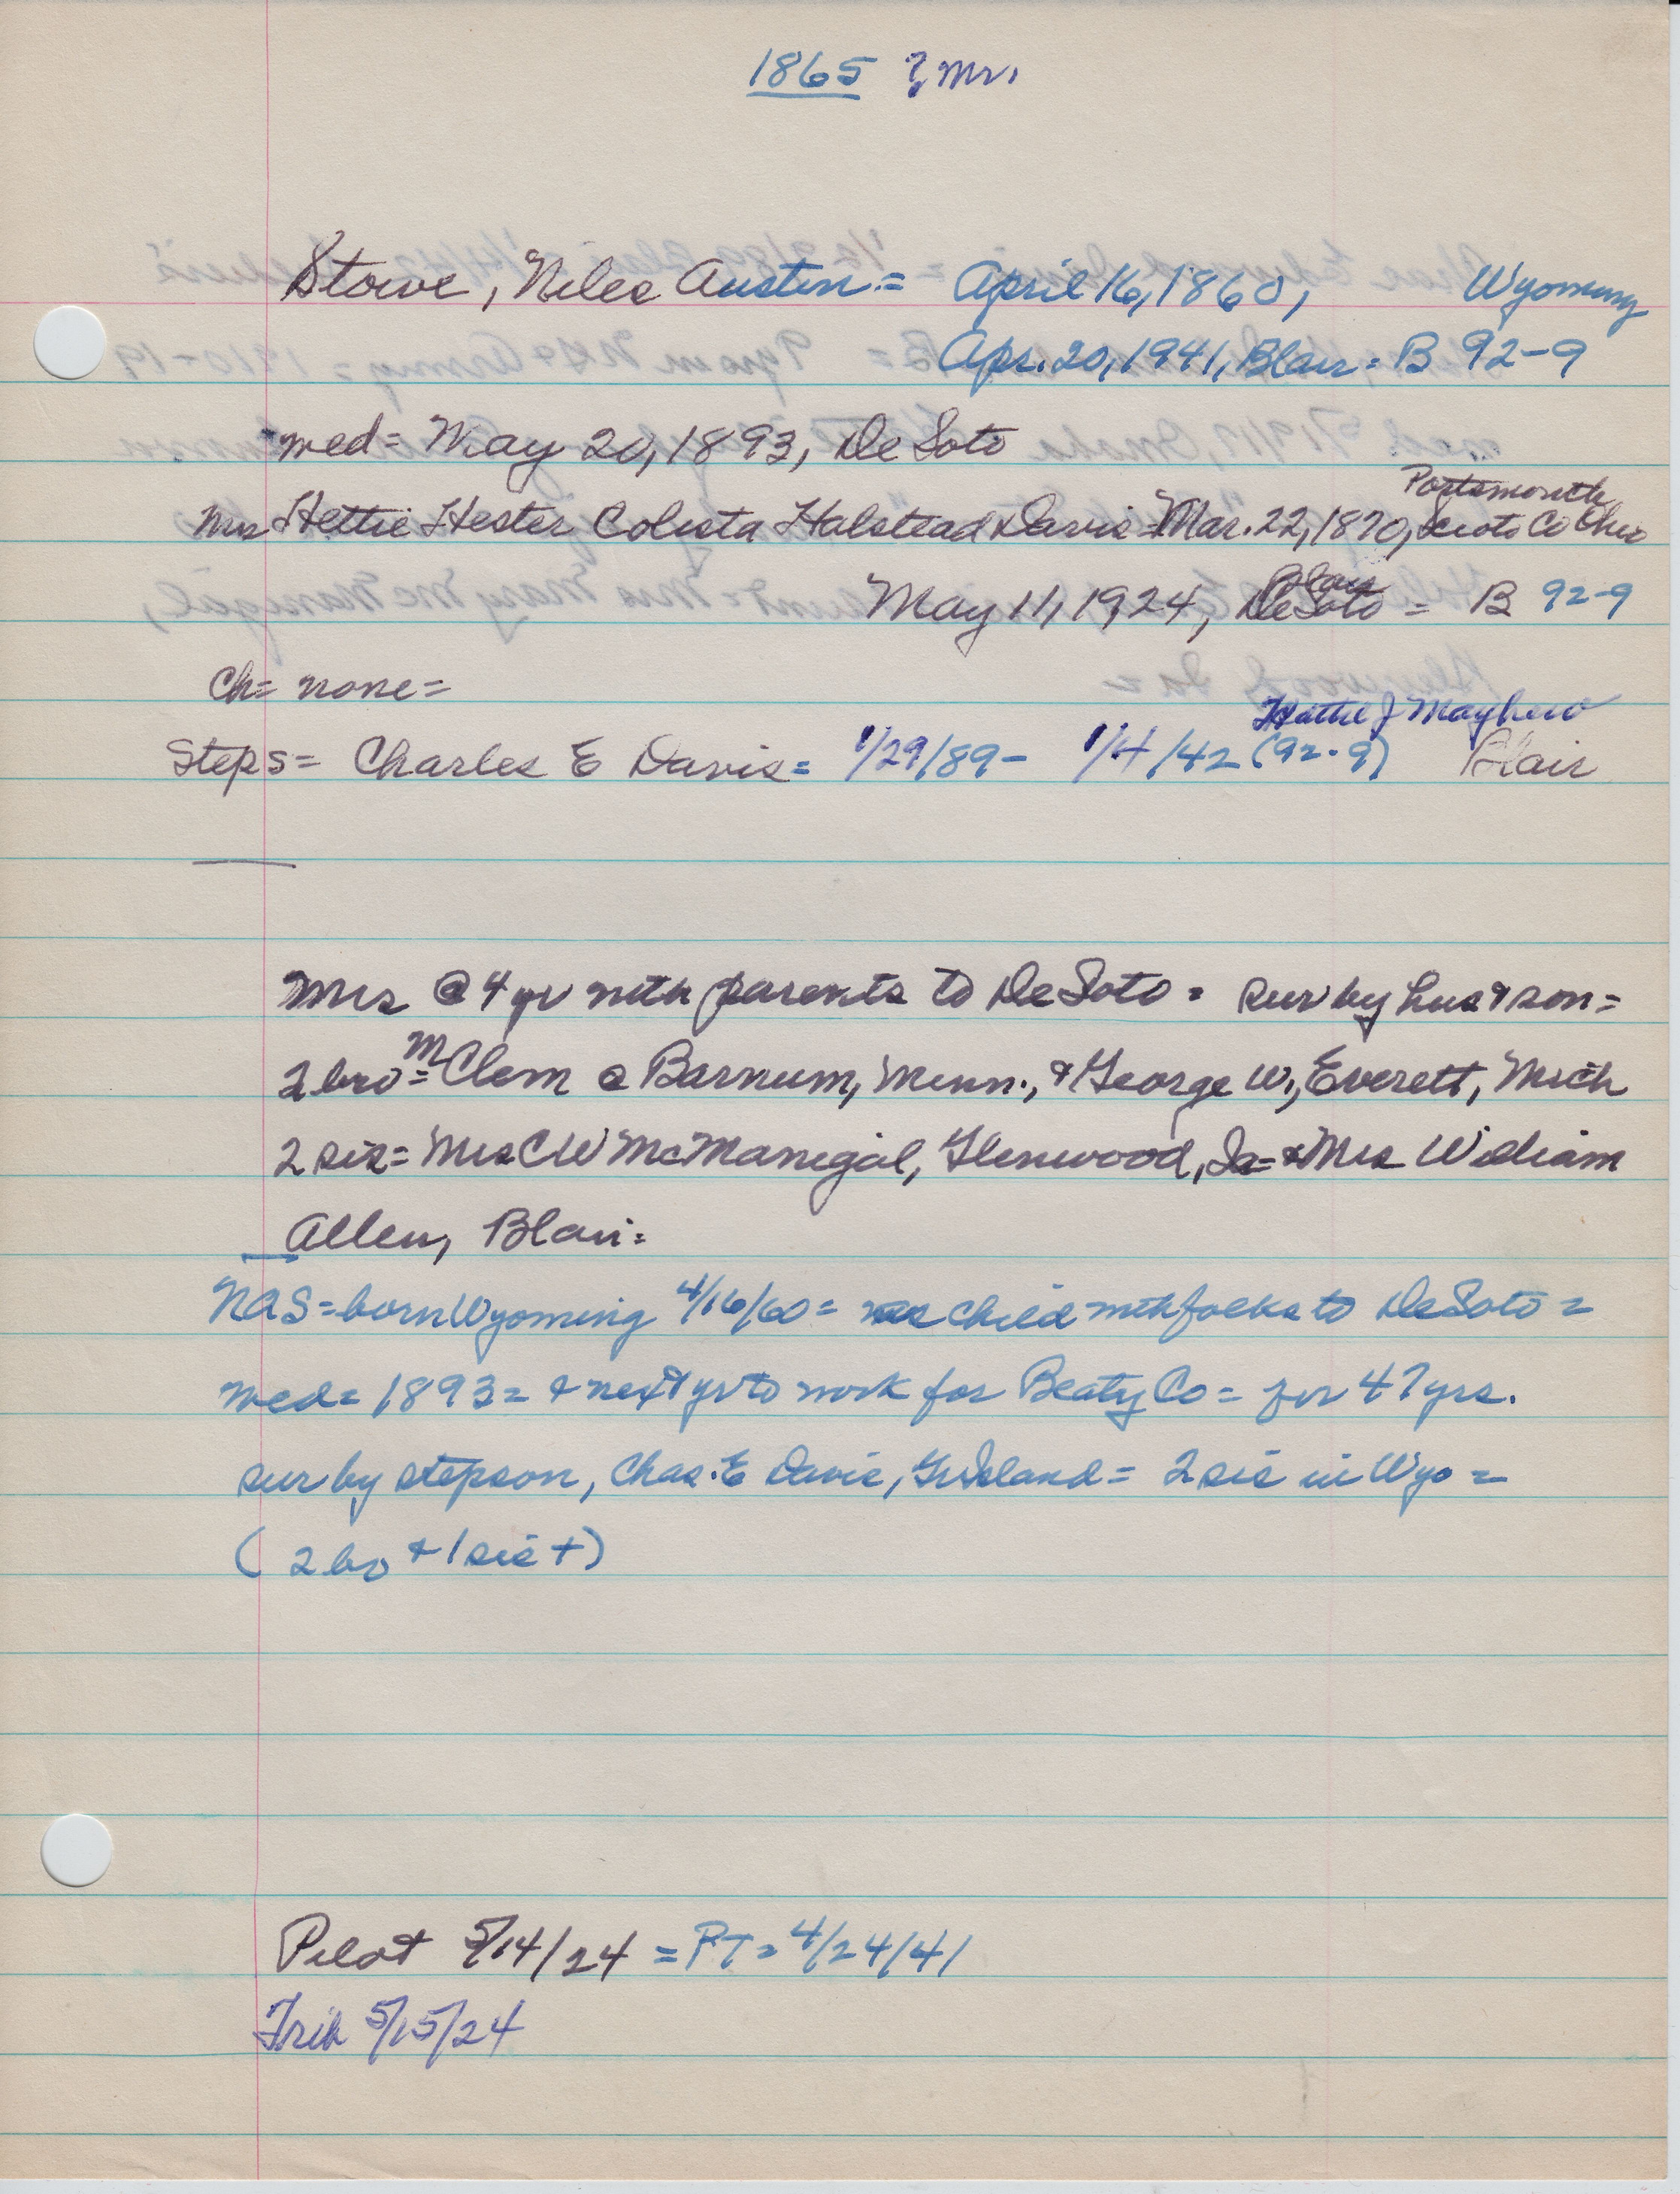 1865 ? Mr.
Stowe, Niles Austin = April 16, 1860, Wyoming
Apr. 20, 1941, Blair = B 92-9
med = May 20, 1893, De Soto
Portsmouth
Mrs Hettie Hester Colesta Halstead Davis = Mar. 22, 1870, Scioto Co Ohio
Blair
May 11, 1924, DeSoto = B 92-9
Ch = none =
Hattie J Mayhew
Steps = Charles E Davis = 1/29/89 - 1/4/42 (92-9) Blair
Mrs @ 4 yr with parents to DeSoto = sur by hus & son =
2 bro = M Clem @ Barnum, Minn., & George W., Everett, Mich
2 sis = Mrs C W McManigal, Glenwood, Ia = & Mrs William
Allen, Blair =
NAS = born Wyoming 4/16/60 = as child with folks to DeSoto =
med = 1893 = & next yr to work for Beaty Co = for 47 yrs.
sur by stepson, Chas. E Davis, Gr Island = 2 sis in Wyo =
( 2 bro + 1 sis + )
Pilot 5/14/24 = PT = 4/24/41
Trib 5/15/24